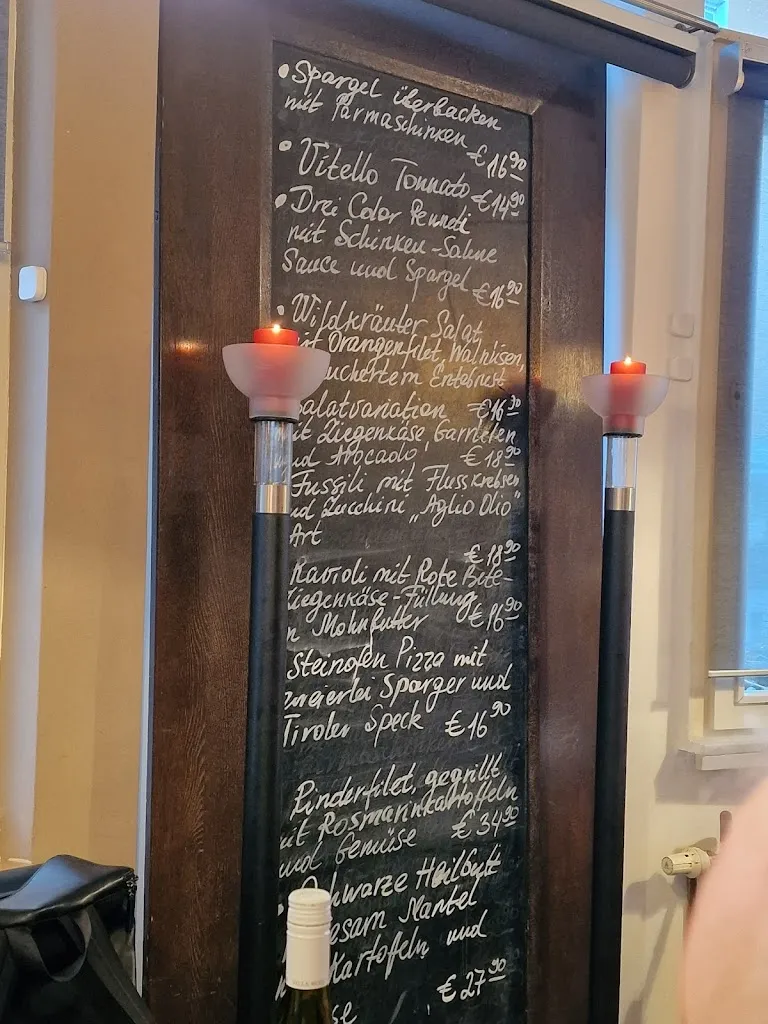 • Spargel überbacken
mit Parmaschinken
€ 16,90
• Vitello Tonnato € 14,90
• Drei Color Penneti
mit Schinken-Sahne
Sauce und Spargel
€ 16,90
• Wildkräuter Salat
it Orangenfilet, Walnüssen,
uchertem Entebrust
alatvariation €16,90
it Ziegenkäse, Garnelen
nd Avocado, € 18,90
Fussili mit Flusskrebsen
nd Zucchini „Aglio Olio"
Art
€ 18,90
Ravioli mit Rote Bete-
Ziegenkäse-Füllung
n Mohnbutter €16,90
Steinofen Pizza mit
zweierlei Sparger und
Tiroler Speck €16,90
Rinderfilet, gegrillt
it Rosmarinkartoffeln
und Gemüse € 34,90
• Schwarze Heilbutt
esam Mantel
Kartoffeln und
€ 27,90
se